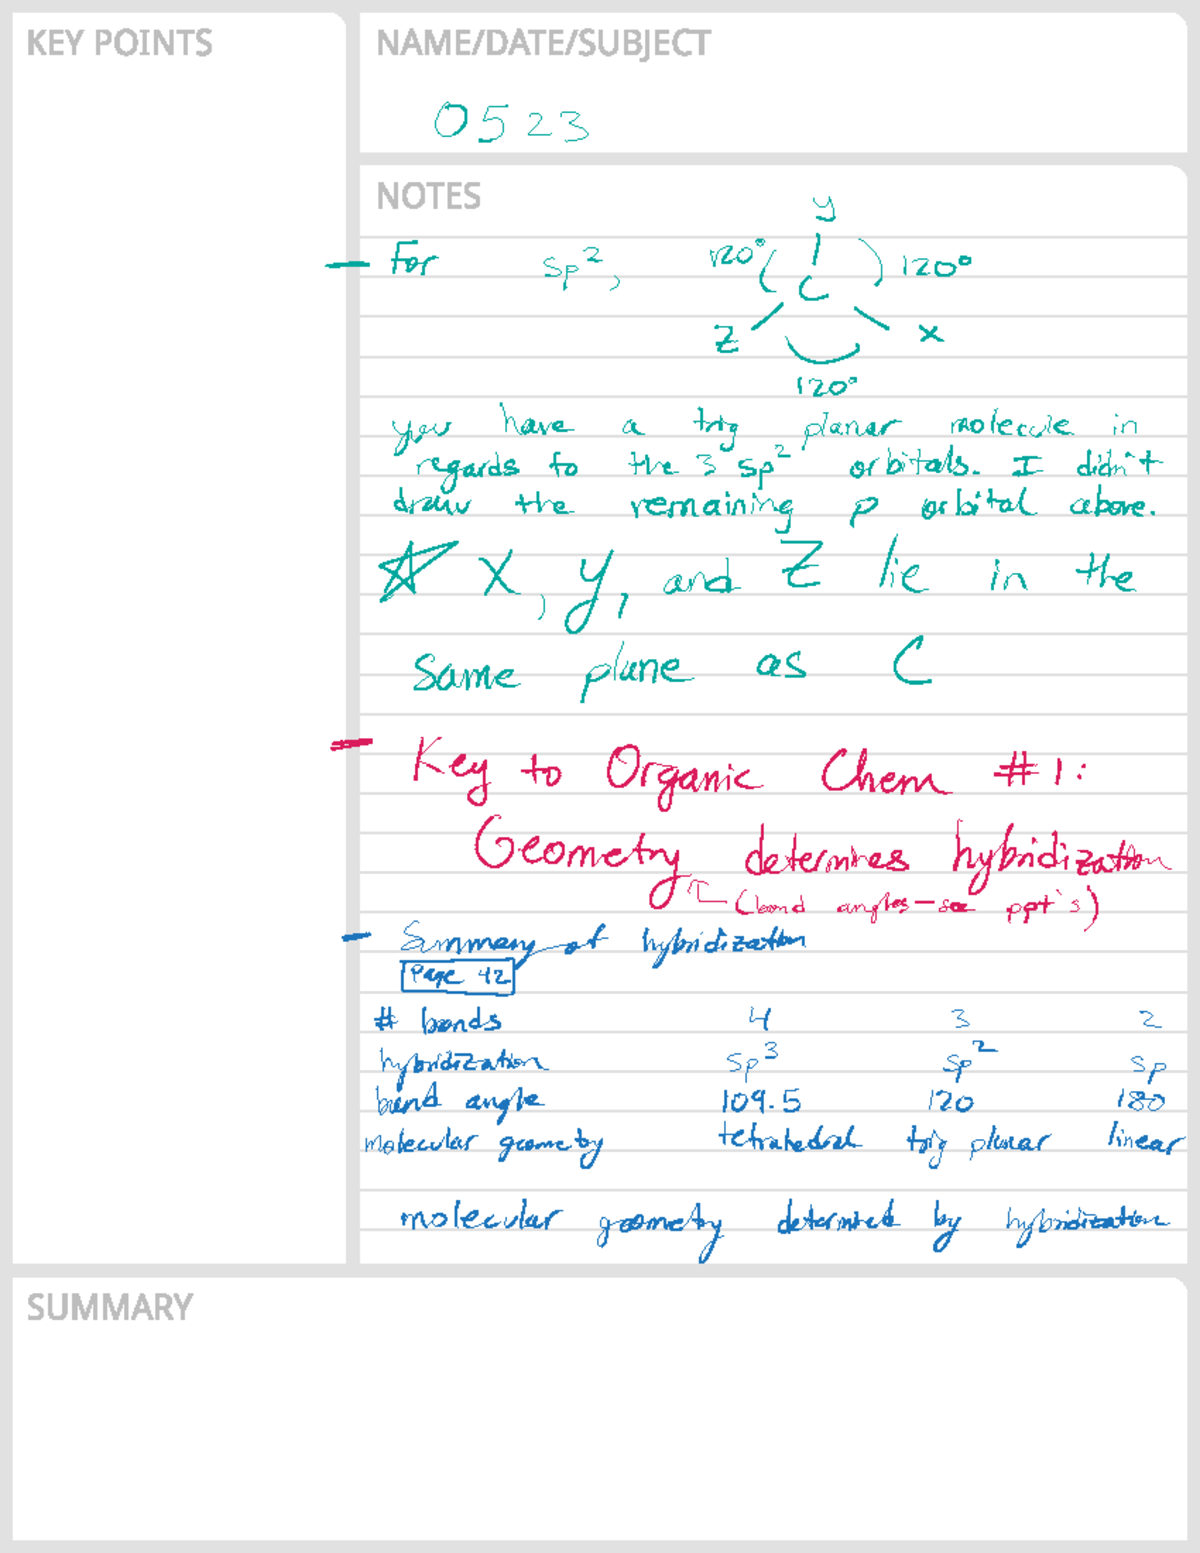 KEY POINTS
NAME/DATE/SUBJECT
0523
NOTES
y
- For sp², 120° C 120°
Z x
120°
you have a trig planar molecule in
regards to the 3 sp² orbitals. I didn't
draw the remaining p orbital above.
☆ X, y, and Z lie in the
same plane as C
- Key to Organic Chem #1:
Geometry determines hybridization
(bond angles-see ppt's)
- Summary of hybridization
Page 42
# bonds 4 3 2
hybridization sp³ sp² sp
bond angle 109.5 120 180
molecular geometry tetrahedral trig planar linear
molecular geometry determined by hybridization
SUMMARY